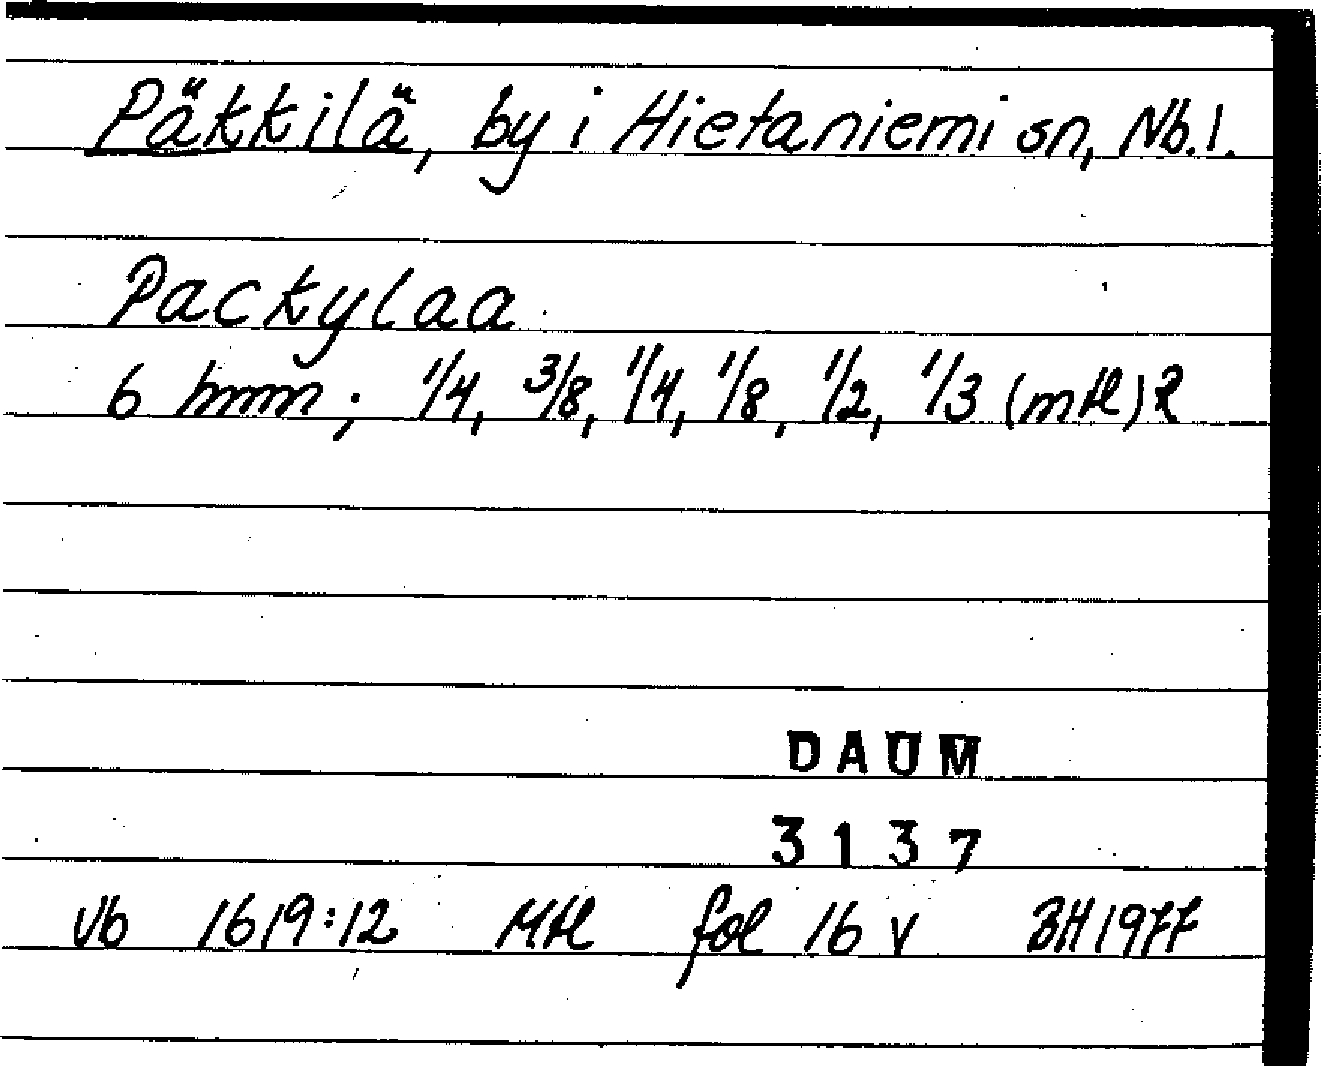 Päkkilä, by i Hietaniemi sn, Nb.l.
Packylaa
6 hmn; 1/4, 3/8, 1/4, 1/8, 1/2, 1/3 (mtl)
DAUM
3137
Vb 1619:12 Mtl fol 16 v BH 1977